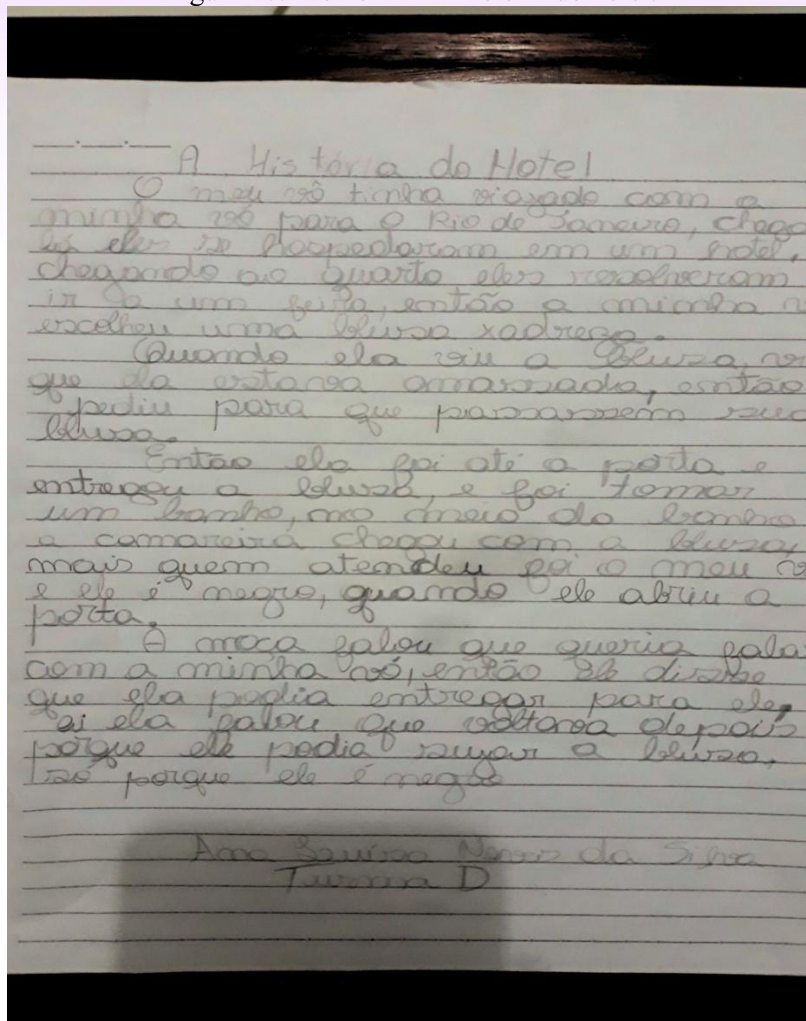 A História do Hotel
O meu vô tinha viajado com a
minha vó para o Rio de Janeiro, chega
lá eles se hospedaram em um hotel,
chegando ao quarto eles resolveram
ir a um feira, então a minha v
escolheu uma blusa xadreza.
Quando ela viu a blusa, vi
que ela estava amassada, então
pediu para que passassem sua
blusa.
Então ela foi até a porta e
entregou a blusa, e foi tomar
um banho, no meio do banho
a camareira chegou com a blusa,
mais quem atendeu foi o meu v
e ele é negro, quando ele abriu a
porta.
A moça falou que queria fala
com a minha vó, então ele disse
que ela podia entregar para ele,
ai ela falou que voltava depois
porque ele podia sujar a blusa,
só porque ele é negro
Ana da Silva
Turma D